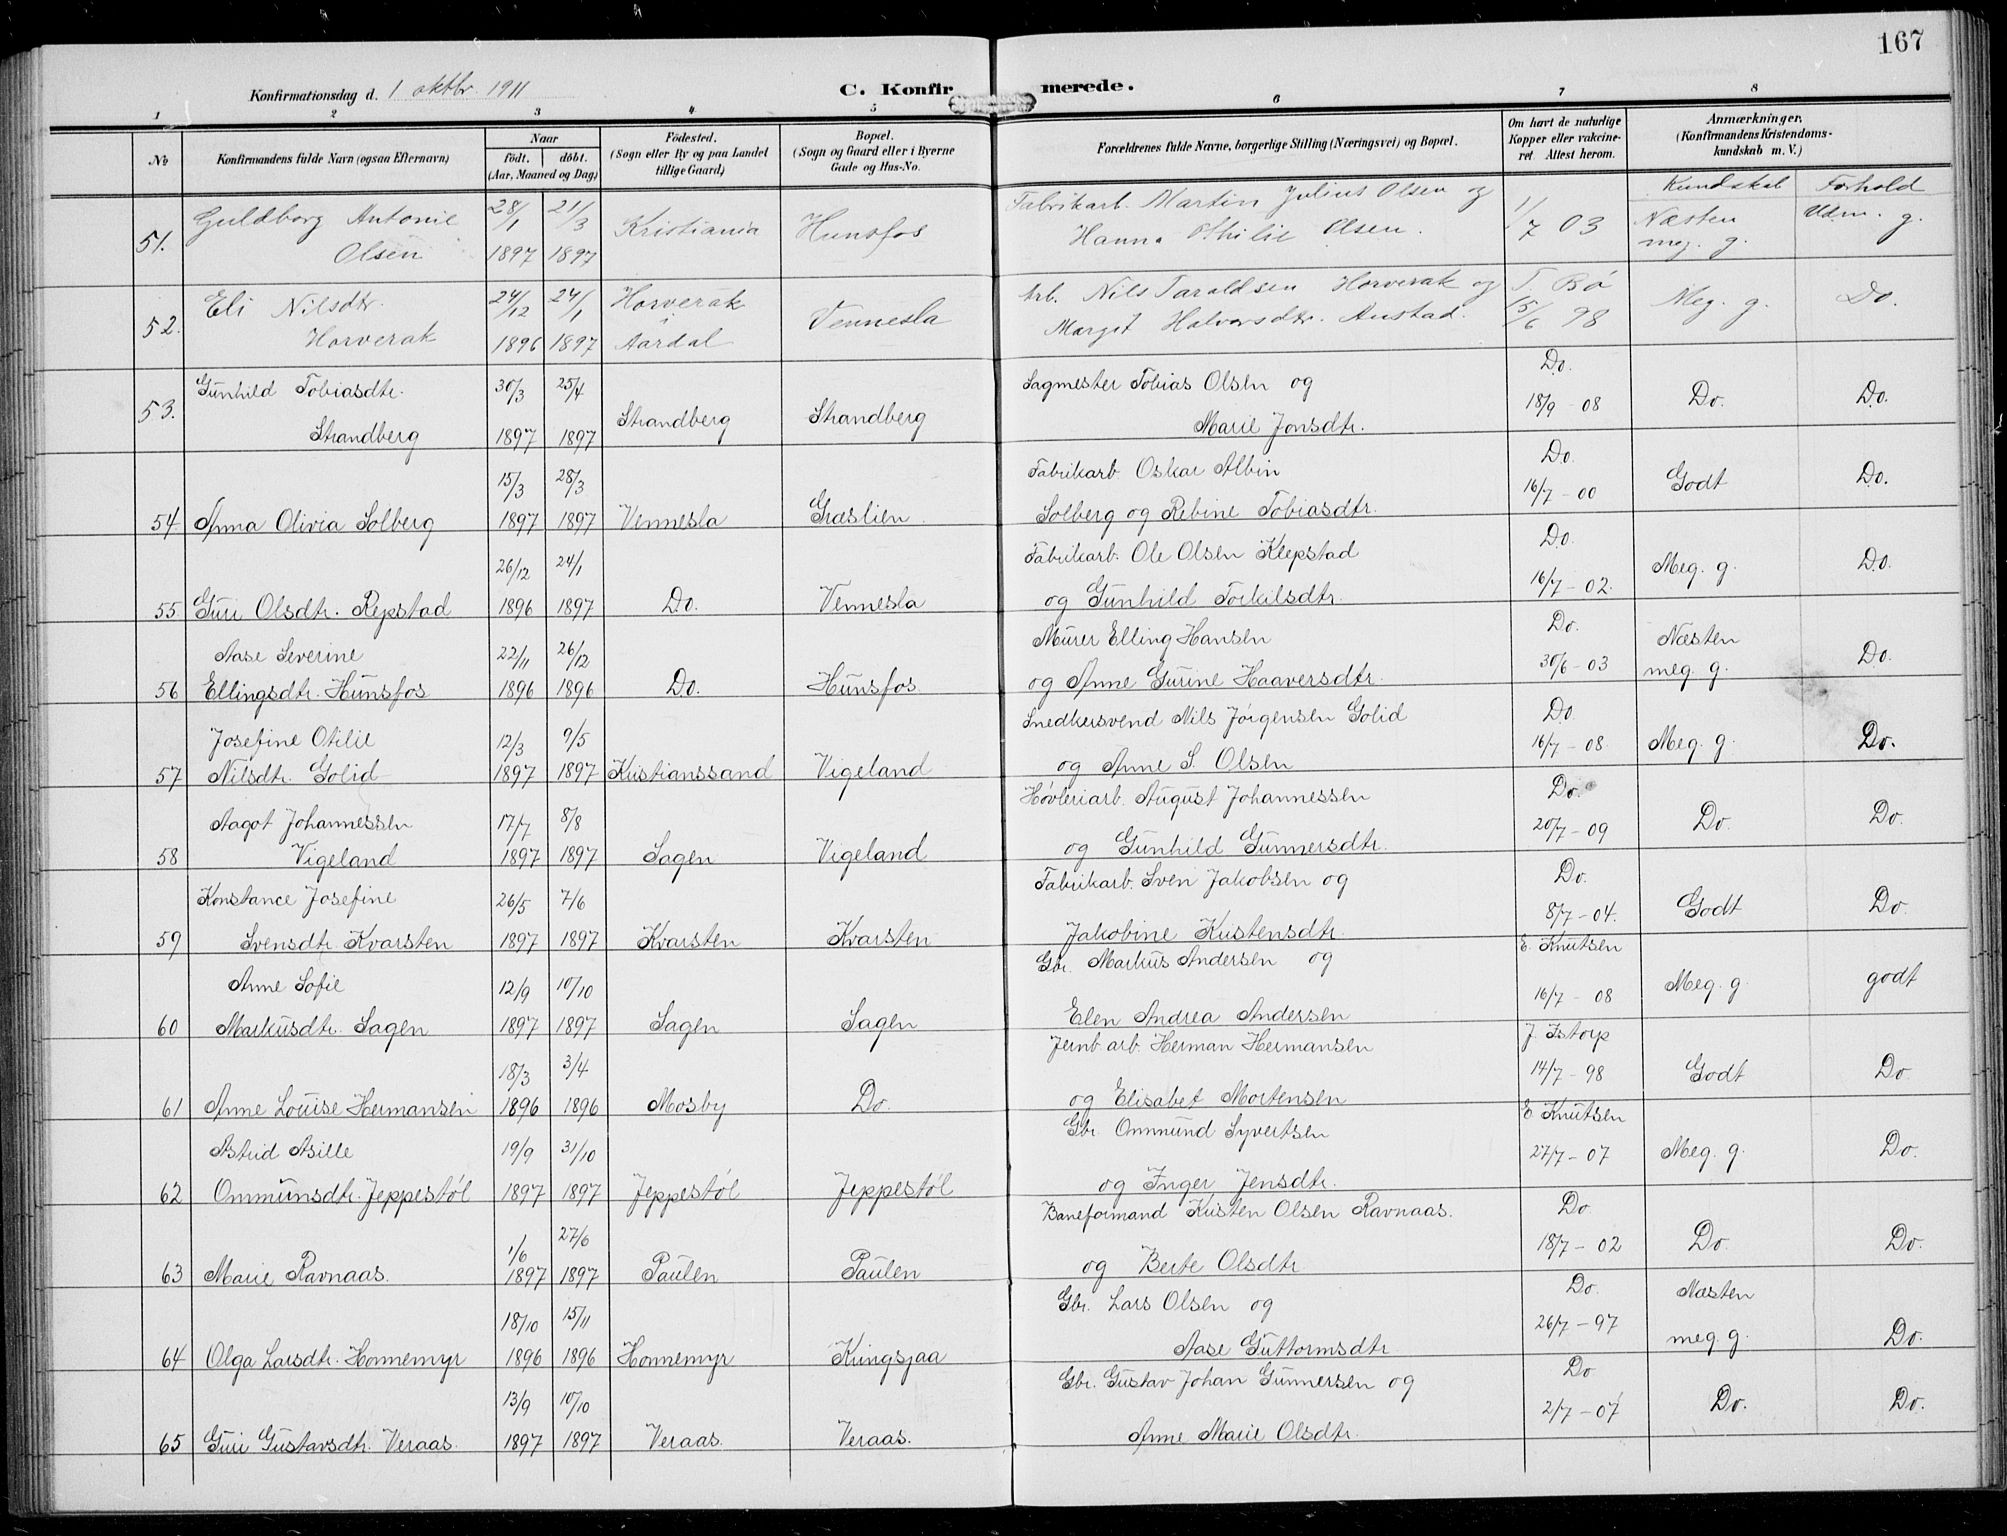 167
Konfirmationsdag d. 1 oktbr. 1911
C. Konfirmerede.
1 2 3 4 5 6 7 8
No
Konfirmandens fulde Navn (ogsaa Efternavn)
Naar
født. døbt.
(Aar, Maaned og Dag)
Fødested.
(Sogn eller By og paa Landet
tillige Gaard)
Bopæl.
(Sogn og Gaard eller i Byerne
Gade og Hus-No.
Forældrenes fulde Navne, borgerlige Stilling (Næringsvei) og Bopæl.
Om havt de naturlige
Kopper eller vakcine-
ret. Attest herom.
Anmærkninger.
(Konfirmandens Kristendoms-
kundskab m. V.)
Kundskab Forhold
Guldborg Antonie 28/1 21/3 Kristiania Hunsfos Fabrikarb. Martin Julius Olsen og 1/7 03 Næsten Udm. g.
51. Olsen 1897 1897 Hanna Othilie Olsen. meg. g.
Eli Nilsdtr. 24/12 24/1 Horverak Vennesla Arb. Nils Taraldsen Horverak og T. Bø Meg. g. Do.
52. Horverak 1896 1897 Aardal Marget Halvorsdtr. Austad. 15/6 98
Gunhild Tobiasdtr. 30/3 25/4 Strandberg Strandberg Sagmester Tobias Olsen og Do. Do. Do.
53. Strandberg 1897 1897 Marie Jonsdtr. 18/9 - 08
15/3 28/3 Fabrikarb. Oskar Albin Do. Godt Do.
54 Anna Olivia Solberg 1897 1897 Vennesla Græslien Solberg og Rebine Tobiasdtr. 16/7 - 00
26/12 24/1 Fabrikarb. Ole Olsen Klepstad Do. Meg. g. Do.
55 Guri Olsdtr. Repstad 1896 1897 Do. Vennesla og Gunhild Torkilsdtr. 16/7 - 02.
Aase Severine 22/11 26/12 Murer Elling Hansen Do. Næsten Do.
56 Ellingsdtr. Hunsfos 1896 1896 Do. Hunsfos og Anne Gurine Haaversdtr. 30/6 - 03 meg. g.
Josefine Otilie 12/3 9/5 Snedkersvend Nils Jørgensen Golid Do. Meg. g. Do.
57 Nilsdtr. Golid 1897 1897 Kristianssand Vigeland og Anne S. Olsen 16/7 - 08
Aagot Johannessen 17/7 8/8 Høvleriarb. August Johannessen Do. Do. Do.
58 Vigeland 1897 1897 Sagen Vigeland og Gunhild Gunnersdtr. 20/7 - 09
Konstance Josefine 26/5 7/6 Fabrikarb. Sven Jakobsen og Do. Godt Do.
59 Svensdtr. Kvarsten 1897 1897 Kvarsten Kvarsten Jakobine Kristensdtr. 8/7 - 04.
Anne Sofie 12/9 10/10 Gbr. Markus Andersen og E. Knutsen Meg. g. godt
60 Markusdtr. Sagen 1897 1897 Sagen Sagen Elen Andrea Andersen 16/7 - 08
18/3 3/4 Jernb. arb. Herman Hermansen J. Istorp Godt Do
61 Anne Louise Hermansen 1896 1896 Mosby Do. og Elisabet Mortensen 14/7 - 98
Astrid Asille 19/9 31/10 Gbr. Ommund Syvertsen E Knutsen Meg. g. Do.
62 Ommunsdtr. Jeppestøl 1897 1897 Jeppestøl Jeppestøl og Inger Jensdtr. 27/7 - 07
1/6 27/6 Baneformand Kristen Olsen Ravnaas. Do. Do. Do.
63 Marie Ravnaas. 1897 1897 Paulen Paulen og Berte Olsdtr. 18/7 - 02
18/10 15/11 Gbr. Lars Olsen og Do. Næsten Do.
64 Olga Larsdtr. Honnemyr 1896 1896 Honnemyr Kringsjaa Aase Guttormsdtr 26/7 - 97 meg. g.
13/9 10/10 Gbr. Gustav Johan Gunnersen og Do Do. Do.
65 Guri Gustavsdtr. Veraas. 1897 1897 Veraas. Veraas. Anne Marie Olsdtr. 2/7 - 07